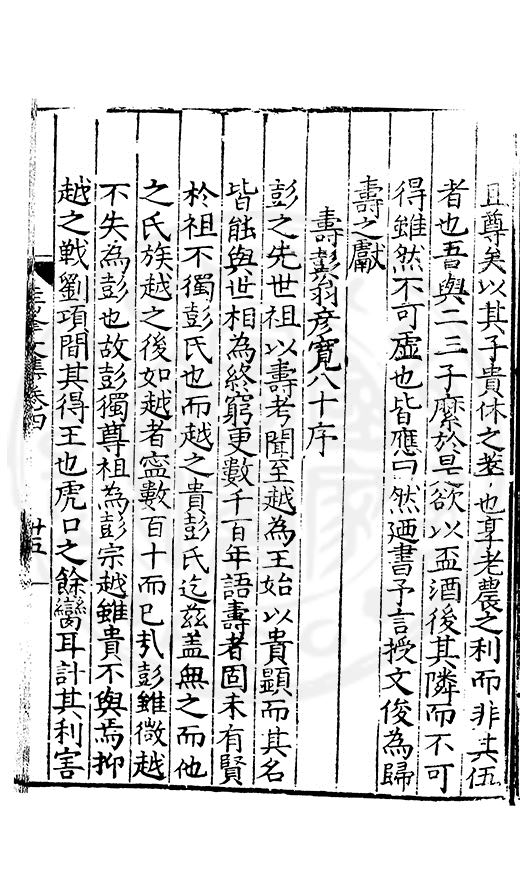 且尊矣以其子貴休之茎也享老農之利而非其伍
者也吾與二三子縻於皂欲以盃酒後其隣而不可
得雖然不可虚也皆應曰然廼書予言授文俊為歸
壽之獻
壽彭翁彦寛八十序
彭之先世祖以壽考聞至越為王始以貴顯而其名
皆能與世相為終窮更數千百年語壽者固未有賢
於祖不獨彭氏也而越之貴彭氏迄茲盖無之而他
之氏族越之後如越者寧數百十而已㢤彭雖微越
不失為彭也故彭獨尊祖為彭宗越雖貴不與焉抑
越之戰劉項間其得王也虎口之餘臠耳計其利害
文集卷四
廿五